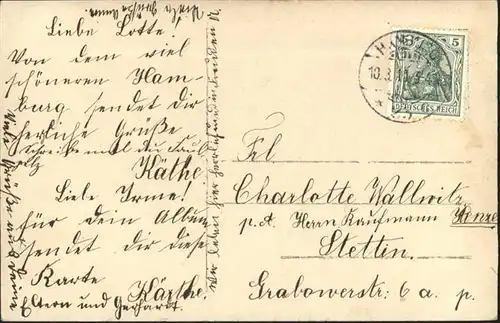 Liebe Lotte!
Von dem viel
schöneren Ham-
burg sendet dir
herzliche Grüße
Schreibe mal du
Käthe
Liebe Irma!
für dein Album
sendet dir diese
Karte
Käthe.
Eltern und Gerhardt.
HAMBURG
10.3.11.
5
DEUTSCHES REICH
Frl
Charlotte Wallwitz
p. A. Herrn Kaufmann Henze
Stettin.
Grabowerstr: 6 a. p.